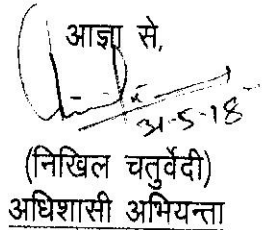 आज्ञा से,
31-5-18
(निखिल चतुर्वेदी)
अधिशासी अभियन्ता